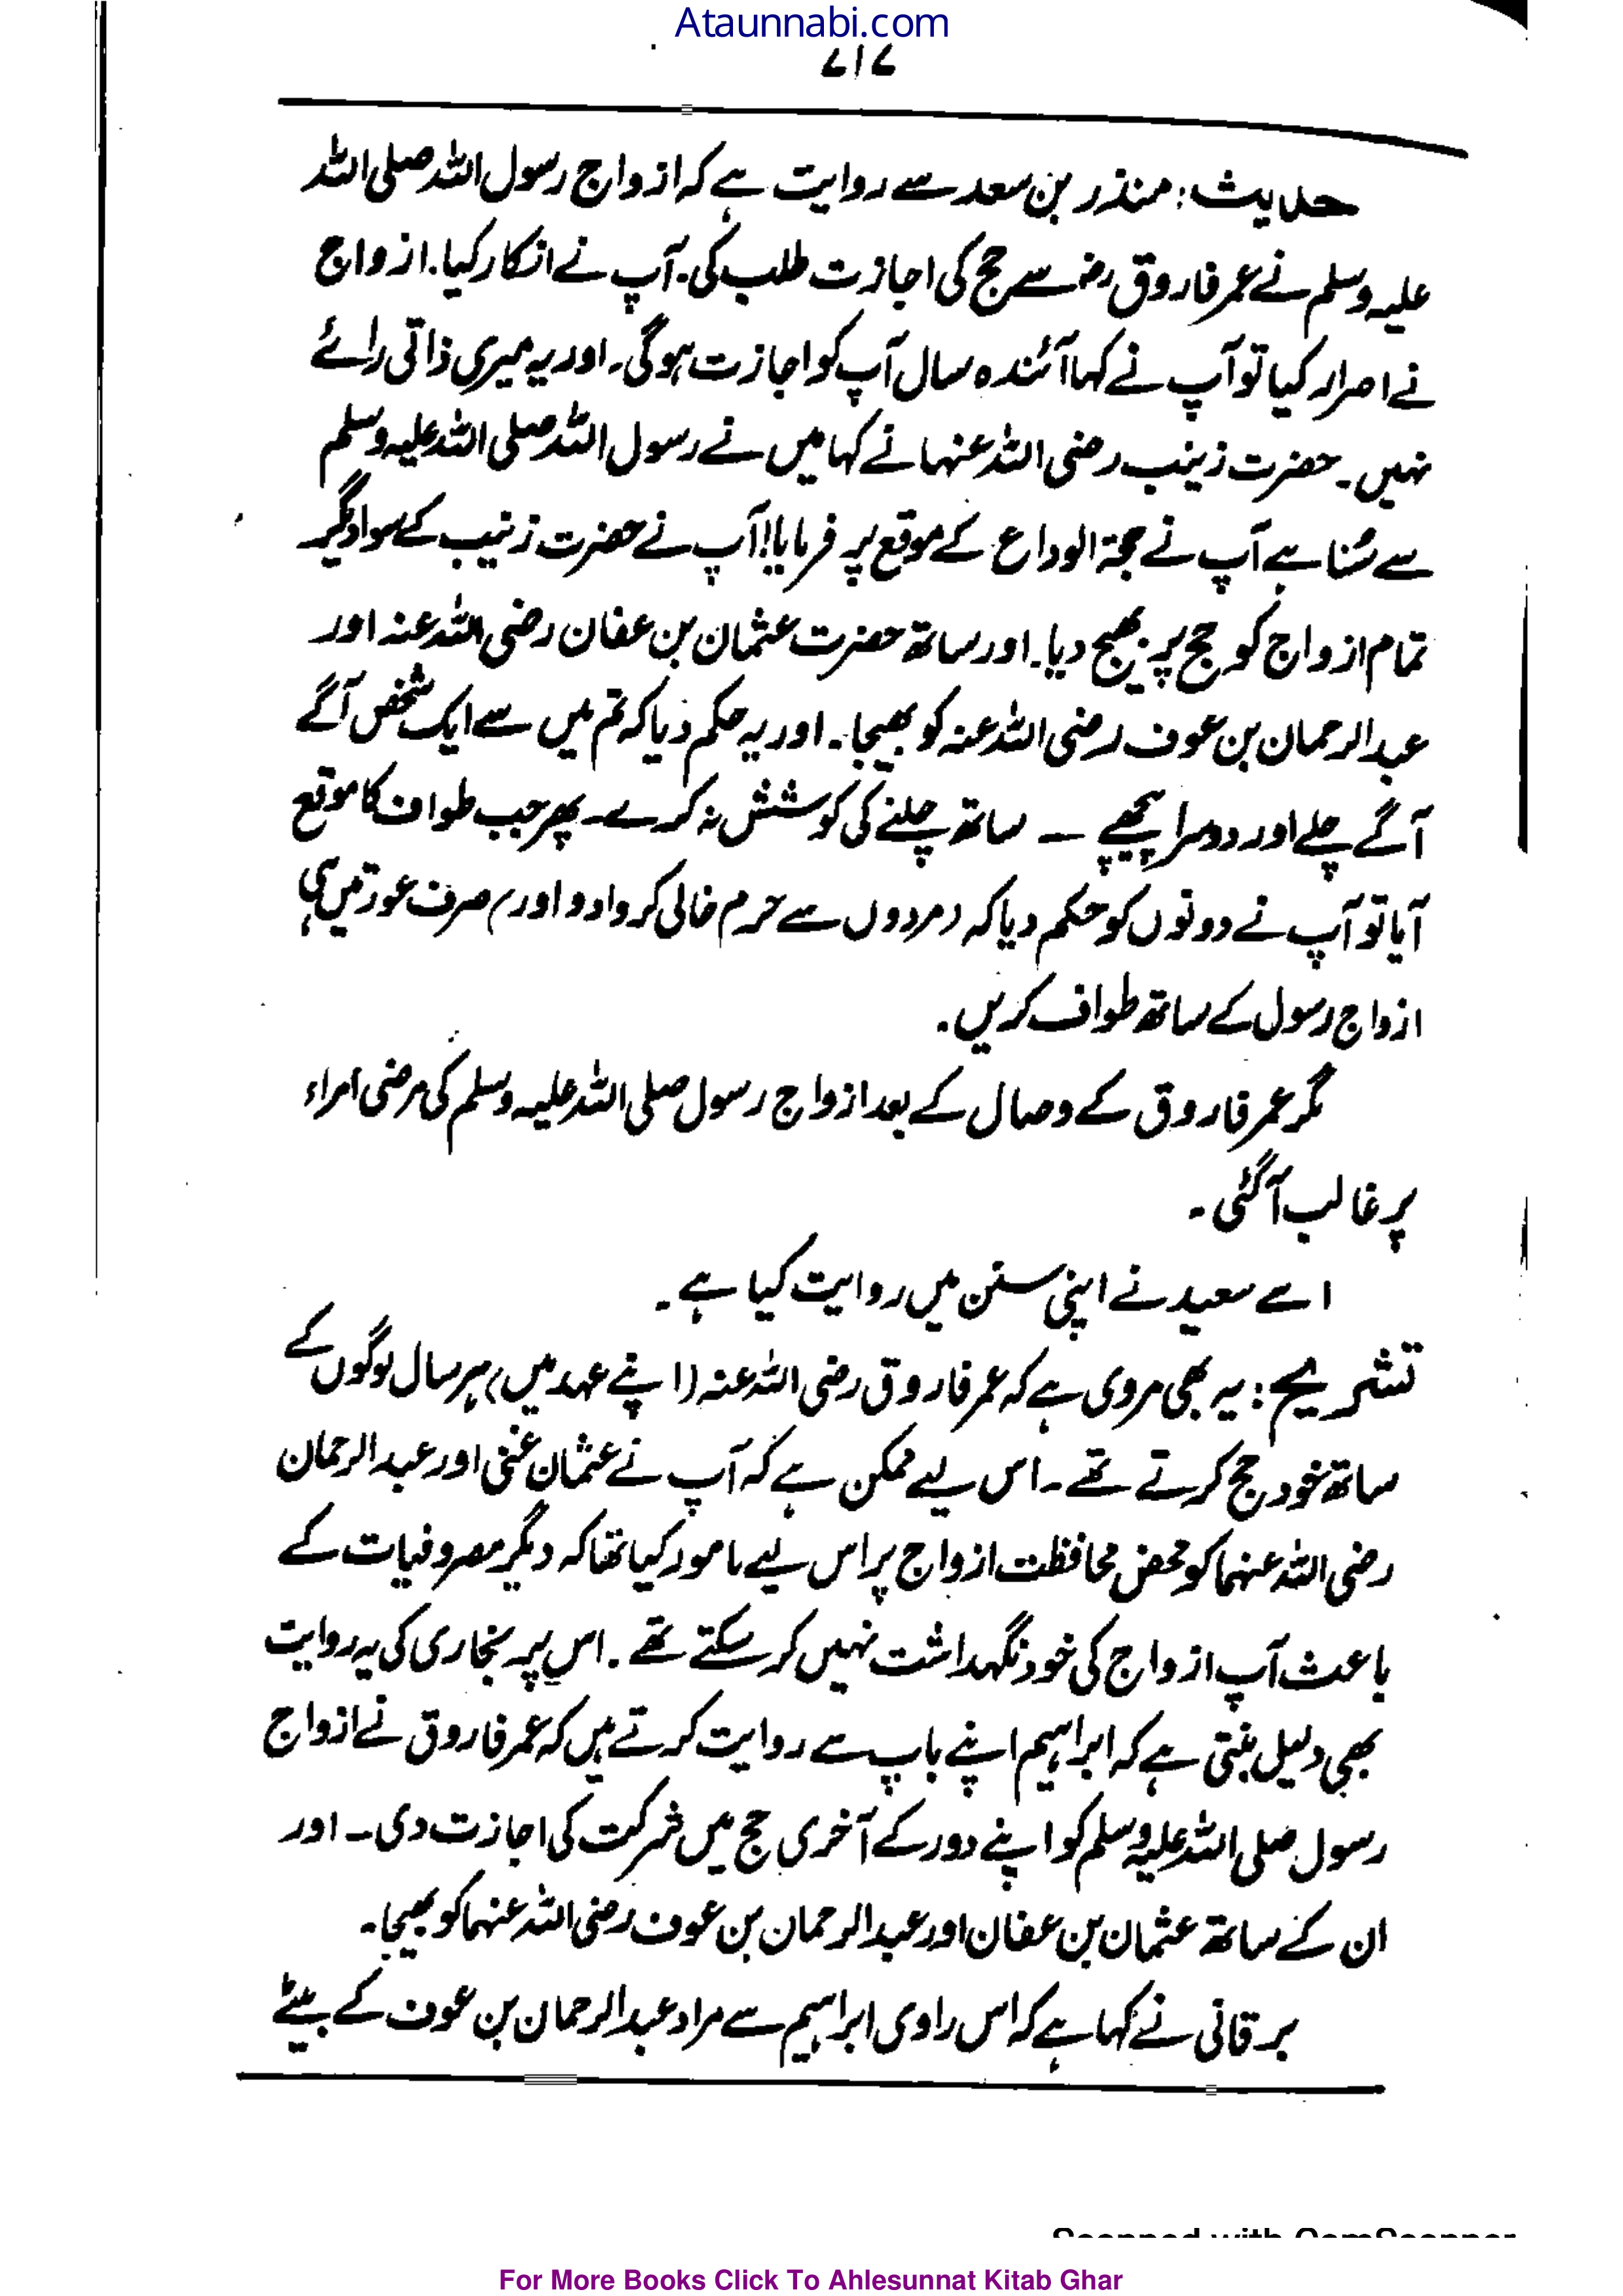 Ataunnabi.com
۷۱۷
حدیث: منذر بن سعد سے روایت ہے کہ ازواج رسول اللہ صلی اللہ
علیہ وسلم نے عمر فاروق رضؓ سے حج کی اجازت طلب کی۔ آپ نے انکار کیا۔ ازواج
نے اصرار کیا تو آپ نے کہا آئندہ سال آپ کو اجازت ہوگی۔ اور یہ میری ذاتی رائے
نہیں۔ حضرت زینب رضی اللہ عنہا نے کہا میں نے رسول اللہ صلی اللہ علیہ وسلم
سے سُنا ہے آپ نے حجۃ الوداع کے موقع پر فرمایا! آپ نے حضرت زینب کے سوا دیگر
تمام ازواج کو حج پر بھیج دیا۔ اور ساتھ حضرت عثمان بن عفان رضی اللہ عنہ اور
عبدالرحمان بن عوف رضی اللہ عنہ کو بھیجا۔ اور یہ حکم دیا کہ تم میں سے ایک شخص آگے
آگے چلے اور دوسرا پیچھے ۔۔ ساتھ چلنے کی کوشش نہ کرے۔ پھر جب طواف کا موقع
آیا تو آپ نے دونوں کو حکم دیا کہ (مردوں سے حرم خالی کروا دو اور) صرف عورتیں ہی
ازواج رسول کے ساتھ طواف کریں۔
مگر عمر فاروق کے وصال کے بعد ازواج رسول صلی اللہ علیہ وسلم کی مرضی امراء
پر غالب آگئی۔
اسے سعید نے اپنی سنن میں روایت کیا ہے۔
تشریح: یہ بھی مروی ہے کہ عمر فاروق رضی اللہ عنہ (اپنے عہد میں) ہر سال لوگوں کے
ساتھ خود حج کرتے تھے۔ اس لیے ممکن ہے کہ آپ نے عثمان غنی اور عبدالرحمان
رضی اللہ عنہما کو محض محافظت ازواج پر اس لیے مامور کیا تھا کہ دیگر مصروفیات کے
باعث آپ ازواج کی خود نگہداشت نہیں کر سکتے تھے۔ اس پر بخاری کی یہ روایت
بھی دلیل بنتی ہے کہ ابراہیم اپنے باپ سے روایت کرتے ہیں کہ عمر فاروق نے ازواج
رسول صلی اللہ علیہ وسلم کو اپنے دور کے آخری حج میں شرکت کی اجازت دی۔ اور
ان کے ساتھ عثمان بن عفان اور عبدالرحمان بن عوف رضی اللہ عنہما کو بھیجا۔
برقانی نے کہا ہے کہ اس راوی ابراہیم سے مراد عبدالرحمان بن عوف کے بیٹے
Scanned with CamScanner
For More Books Click To Ahlesunnat Kitab Ghar